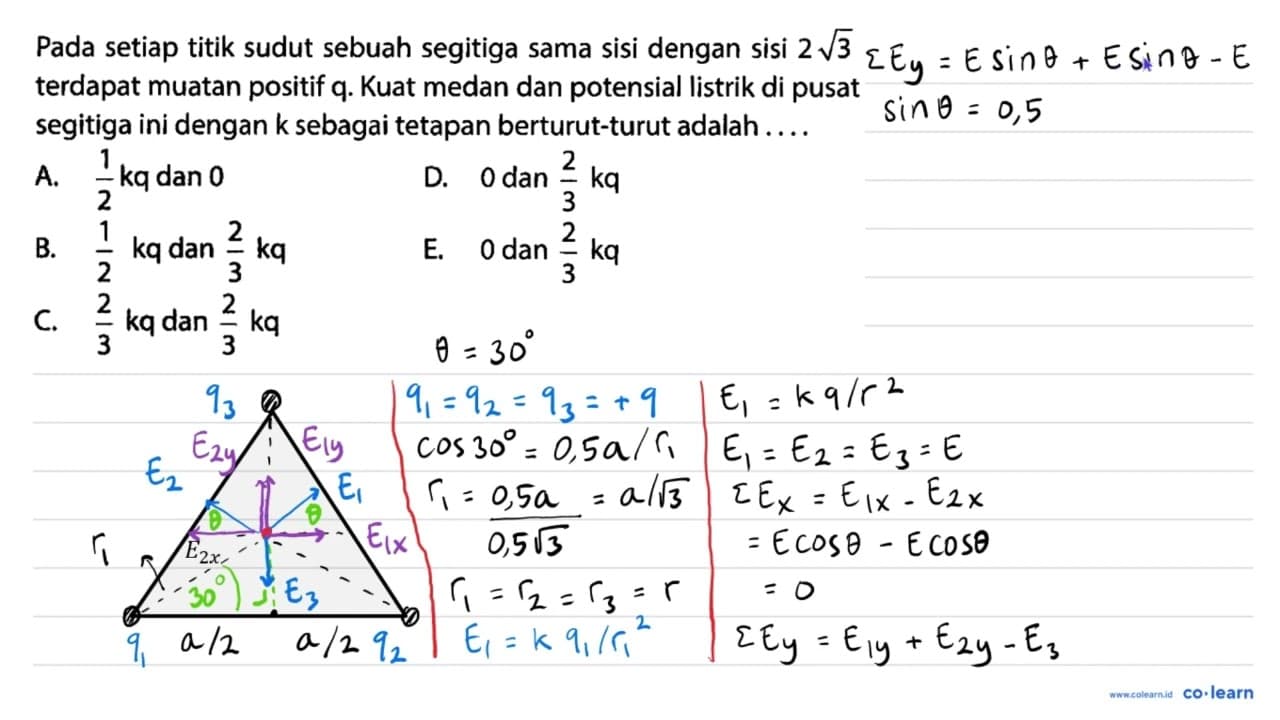 Pada setiap titik sudut sebuah segitiga sama sisi dengan sisi 2√3
terdapat muatan positif q. Kuat medan dan potensial listrik di pusat
segitiga ini dengan k sebagai tetapan berturut-turut adalah . . . .
A. 1/2 kq dan 0
B. 1/2 kq dan 2/3 kq
C. 2/3 kq dan 2/3 kq
D. 0 dan 2/3 kq
E. 0 dan 2/3 kq
ΣEy = E sinθ + E sinθ - E
sinθ = 0,5
θ = 30°
q₃
E2y
E1y
E₂
E₁
θ
θ
E1x
E2x
r₁
30°
E₃
q₁ a/2 a/2 q₂
q₁ = q₂ = q₃ = + q
cos 30° = 0,5a/r₁
r₁ = 0,5a/0,5√3 = a/√3
r₁ = r₂ = r₃ = r
E₁ = k q₁/r₁²
E₁ = k q/r²
E₁ = E₂ = E₃ = E
ΣEx = E1x - E2x
= E cosθ - E cosθ
= 0
ΣEy = E1y + E2y - E₃
www.colearn.id co·learn